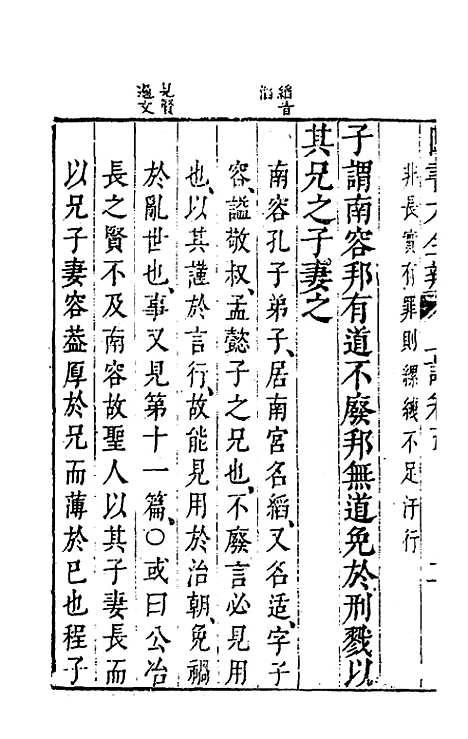 非長實有罪則縲絏不足汙行
子謂南容邦有道不廢邦無道免於刑戮以
其兄之子妻之
縚音
滔
南容孔子弟子、居南宮名縚、又名适、字子
容、謚敬叔、孟懿子之兄也、不廢言必見用
也、以其謹於言行、故能見用於治朝、免禍
於亂世也、事又見第十一篇、○或曰公冶
見賢
遍文
長之賢不及南容故聖人以其子妻長而
以兄子妻容葢厚於兄而薄於已也程子